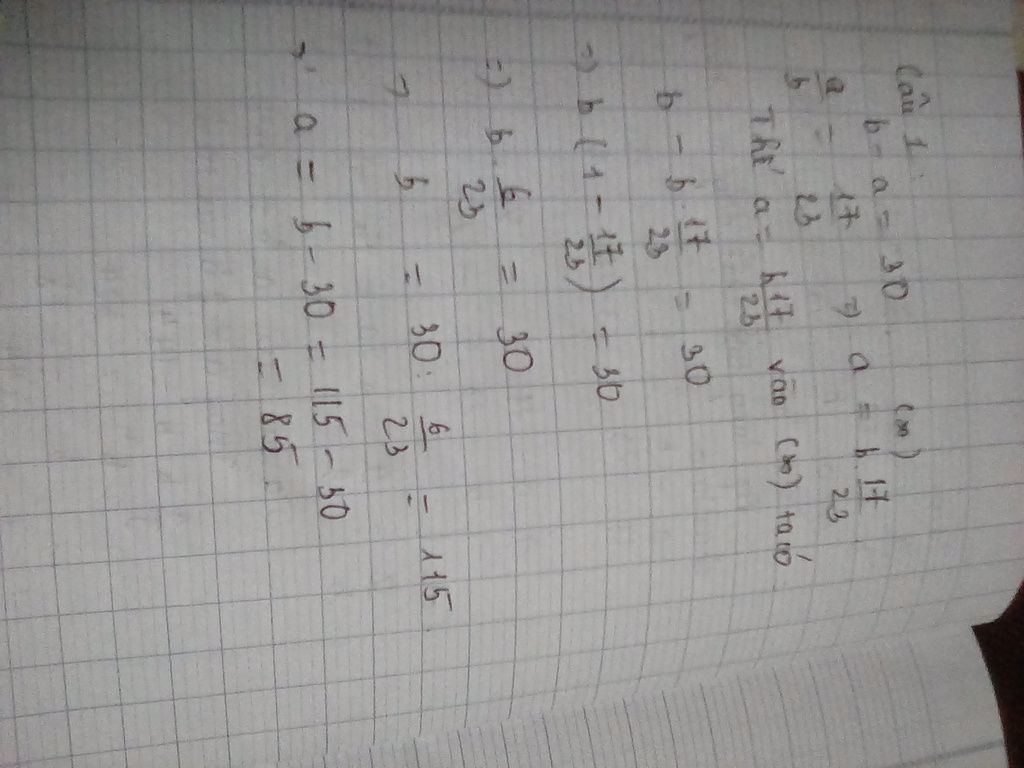 Câu 1:
b - a = 30 (*)
a/b = 17/23 => a = b 17/23
Thế a = b 17/23 vào (*) ta có
b - b 17/23 = 30
=> b (1 - 17/23) = 30
=> b. 6/23 = 30
=> b = 30 : 6/23 = 115
=> a = b - 30 = 115 - 30
= 85